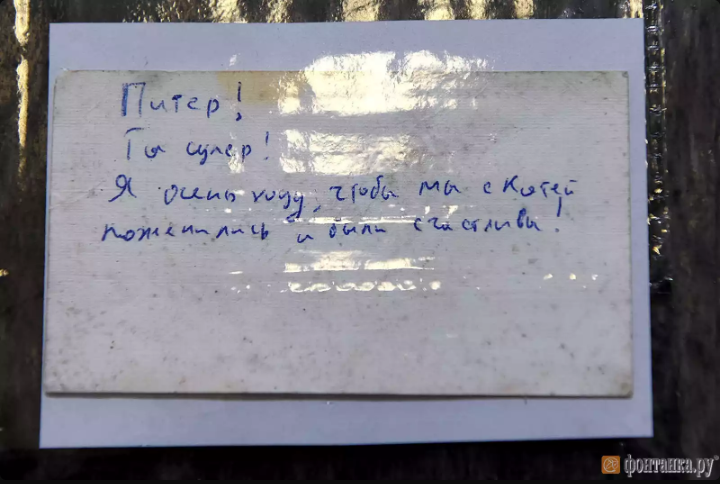 Питер!
Ты супер!
Я очень хочу, чтобы мы с Катей
поженились и были счастливы!
фонтанка.ру